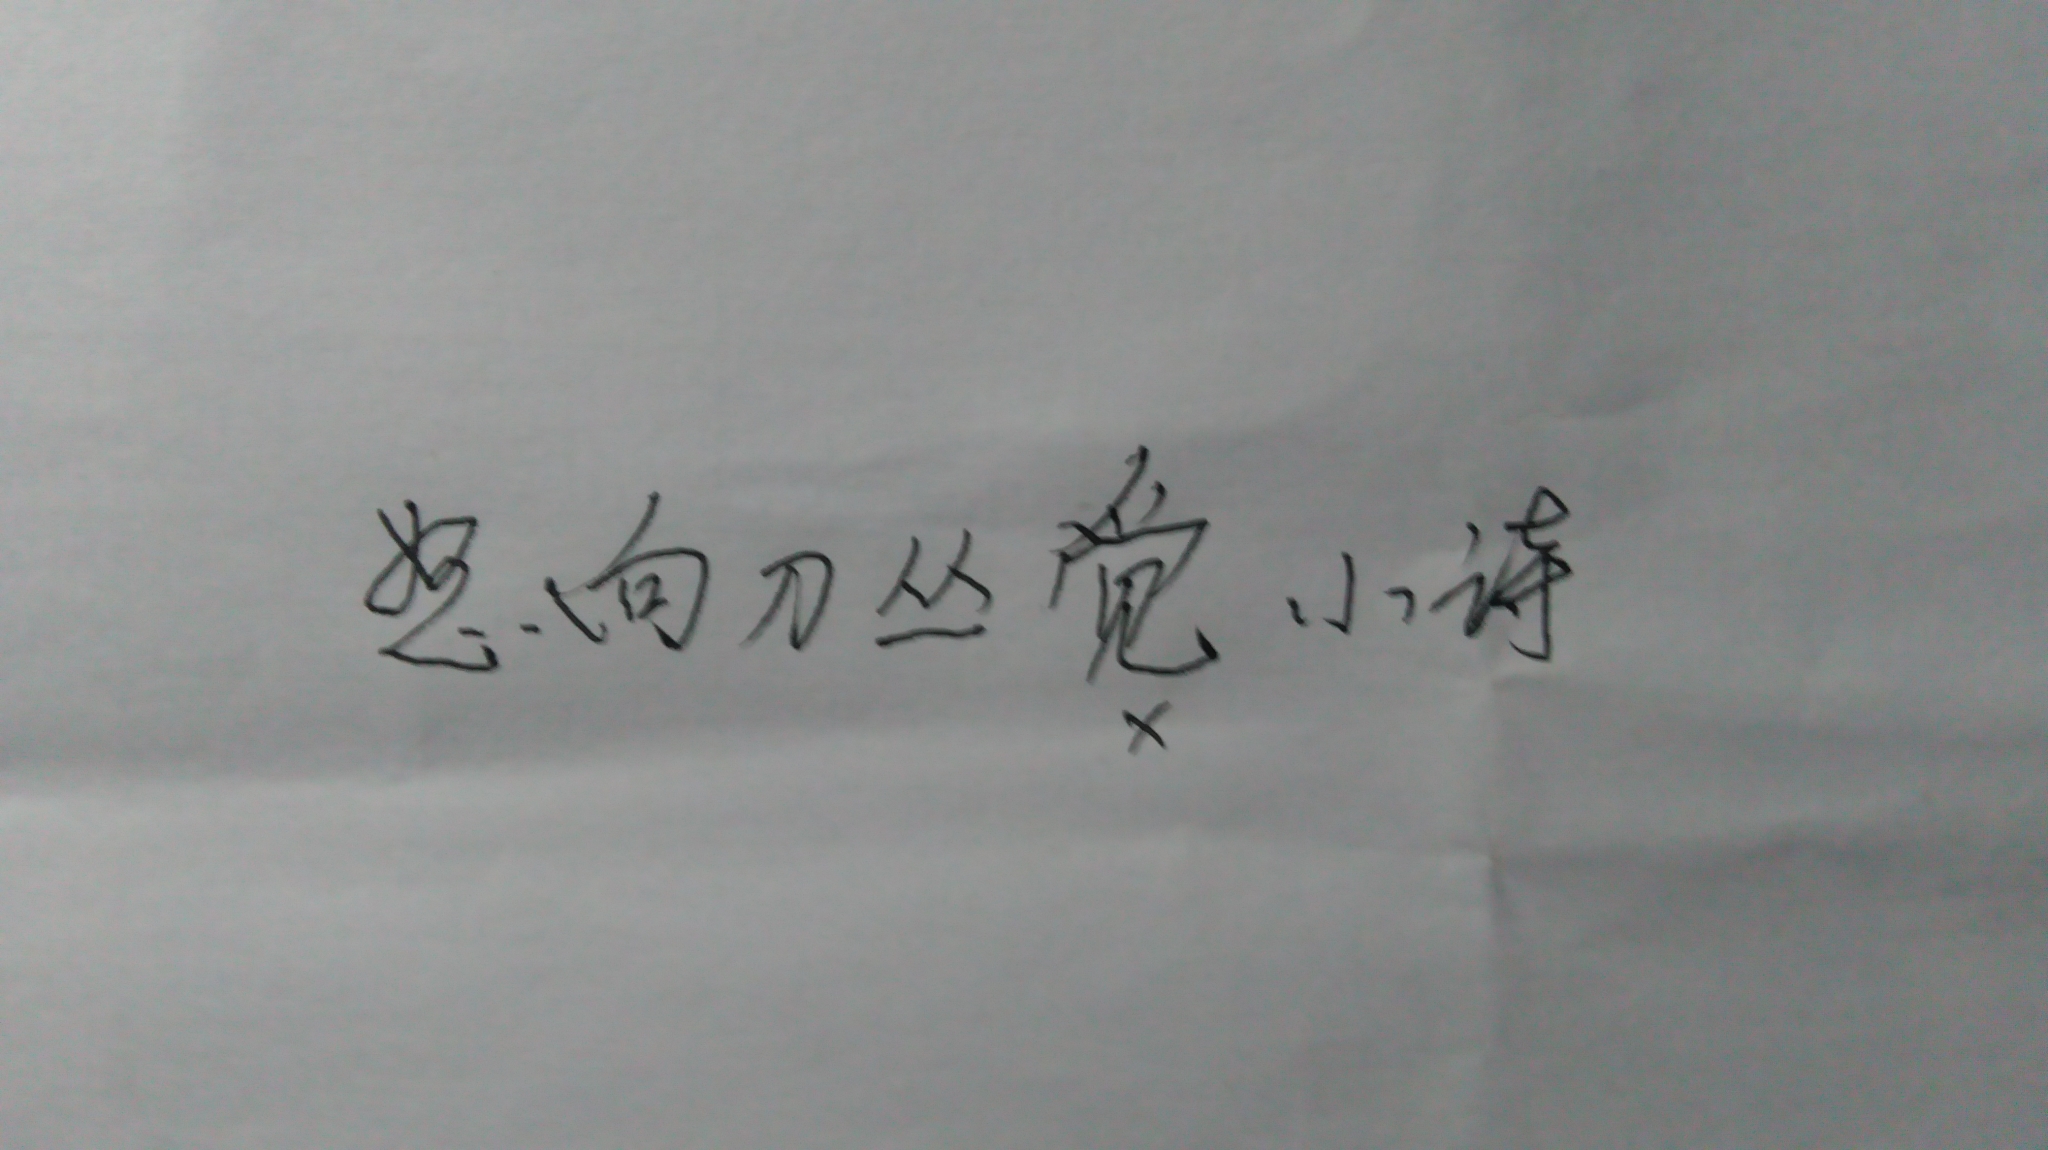 怒向刀丛觉小诗
×